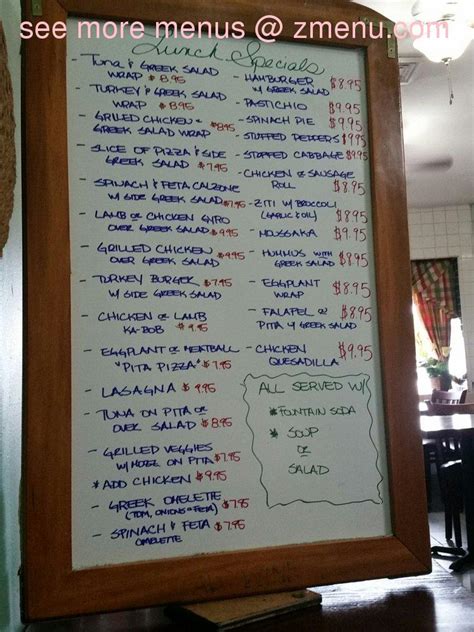 see more menus @ zmenu.com
Lunch Specials
- Tuna & GREEK SALAD
WRAP $8.95
- TURKEY & GREEK SALAD
WRAP $8.95
- GRILLED CHICKEN &
GREEK SALAD WRAP $8.95
- SLICE OF PIZZA & SIDE
GREEK SALAD $7.95
- SPINACH & FETA CALZONE
W/ SIDE GREEK SALAD $7.95
- LAMB OR CHICKEN GYRO
OVER GREEK SALAD $9.95
- GRILLED CHICKEN
OVER GREEK SALAD $9.95
- TURKEY BURGER $7.95
W/ SIDE GREEK SALAD
- CHICKEN OR LAMB
KA-BOB $9.95
- EGGPLANT OR MEATBALL
"PITA PIZZA" $7.95
- LASAGNA $9.95
- TUNA ON PITA OR
OVER SALAD $8.95
- GRILLED VEGGIES
ON PITA $7.95
* ADD CHICKEN $9.95
- GREEK OMELETTE $7.95
(TOM, ONIONS & FETA)
- SPINACH & FETA $7.95
OMELETTE
- HAMBURGER $8.95
W/ GREEK SALAD
- PASTICHIO $9.95
- SPINACH PIE $9.95
- STUFFED PEPPERS $9.95
- STUFFED CABBAGE $9.95
- CHICKEN OR SAUSAGE
ROLL $8.95
- ZITI W/ BROCCOLI
(GARLIC & OIL) $8.95
- MOUSSAKA $9.95
- HUMMUS WITH
GREEK SALAD $8.95
- EGGPLANT
WRAP $8.95
- FALAFEL OR $8.95
PITA W/ GREEK SALAD
- CHICKEN $9.95
QUESADILLA
ALL SERVED W/
* FOUNTAIN SODA
* SOUP
OR
SALAD